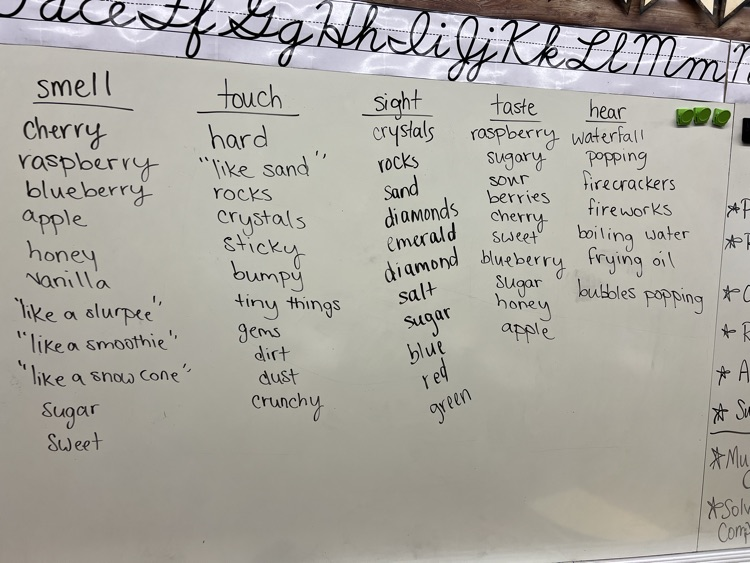 Ff Gg Hh Ii Jj Kk Ll Mm
smell
cherry
raspberry
blueberry
apple
honey
vanilla
"like a slurpee"
"like a smoothie"
"like a snow cone"
sugar
sweet
touch
hard
"like sand"
rocks
crystals
sticky
bumpy
tiny things
gems
dirt
dust
crunchy
sight
crystals
rocks
sand
diamonds
emerald
diamond
salt
sugar
blue
red
green
taste
raspberry
sugary
sour
berries
cherry
sweet
blueberry
sugar
honey
apple
hear
waterfall
popping
firecrackers
fireworks
boiling water
frying oil
bubbles popping